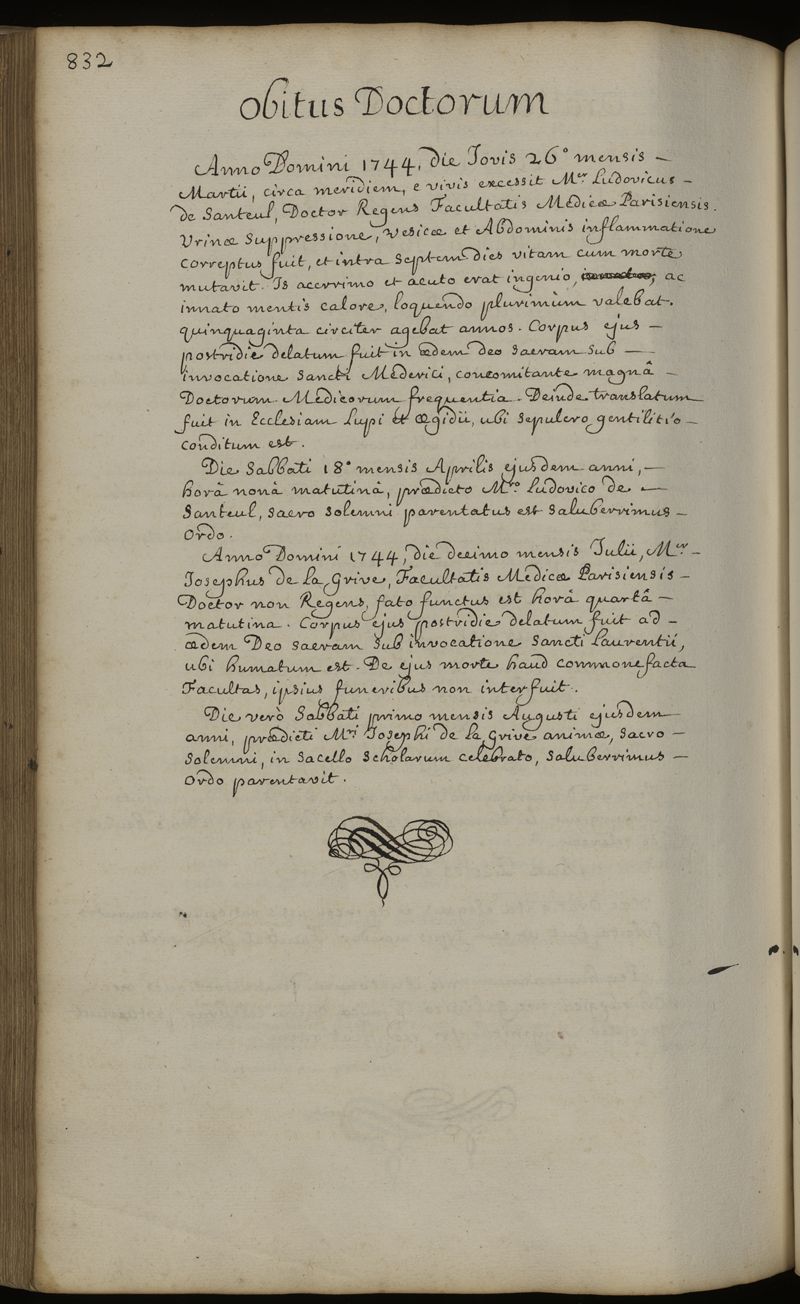 832
Obitus Doctorum
Anno Domini 1744, die Jovis 26° mensis –
Martii, circa meridiem, e vivis excessit Mer Ludovicus –
de Santeul, Doctor Regens Facultatis Medicæ Parisiensis.
Urinæ Suppressione, vesicæ et Abdominis inflammatione
correptus fuit, et intra Septem dies vitam cum morte
mutavit. Is acerrimo et acuto erat ingenio, ac
innato mentis calore, loquendo plurimùm valebat.
quinquaginta circiter agebat annos. Corpus ejus –
postridie delatum fuit in ædem deo sacram sub –
invocatione Sancti Mederici, concomitante magnâ –
Doctorum Medicorum frequentia. Deinde translatum
fuit in Ecclesiam Lupi et Ægidii, ubi sepulcro gentilitio –
conditum est.
Die Sabbati 18° mensis Aprilis ejusdem anni, –
horâ nonâ matutinâ, prædicto Mro Ludovico de –
Santeul, sacro solemni parentatus est saluberrimus –
Ordo.
Anno Domini 1744, die decimo mensis Julii, Mer –
Josephus de La Grive, Facultatis Medicæ Parisiensis –
Doctor non Regens, fato functus est horâ quartâ –
matutina. Corpus ejus postridie delatum fuit ad –
ædem Deo sacram sub invocatione Sancti Laurentii,
ubi humatum est. De ejus morte haud commonefacta
Facultas, ipsius funeribus non interfuit.
Die verò Sabbati primo mensis Augusti ejusdem
anni, prædicti Mri Josephi de la Grive animæ, sacro –
Solemni, in Sacello Scholarum celebrato, saluberrimus –
Ordo parentavit.